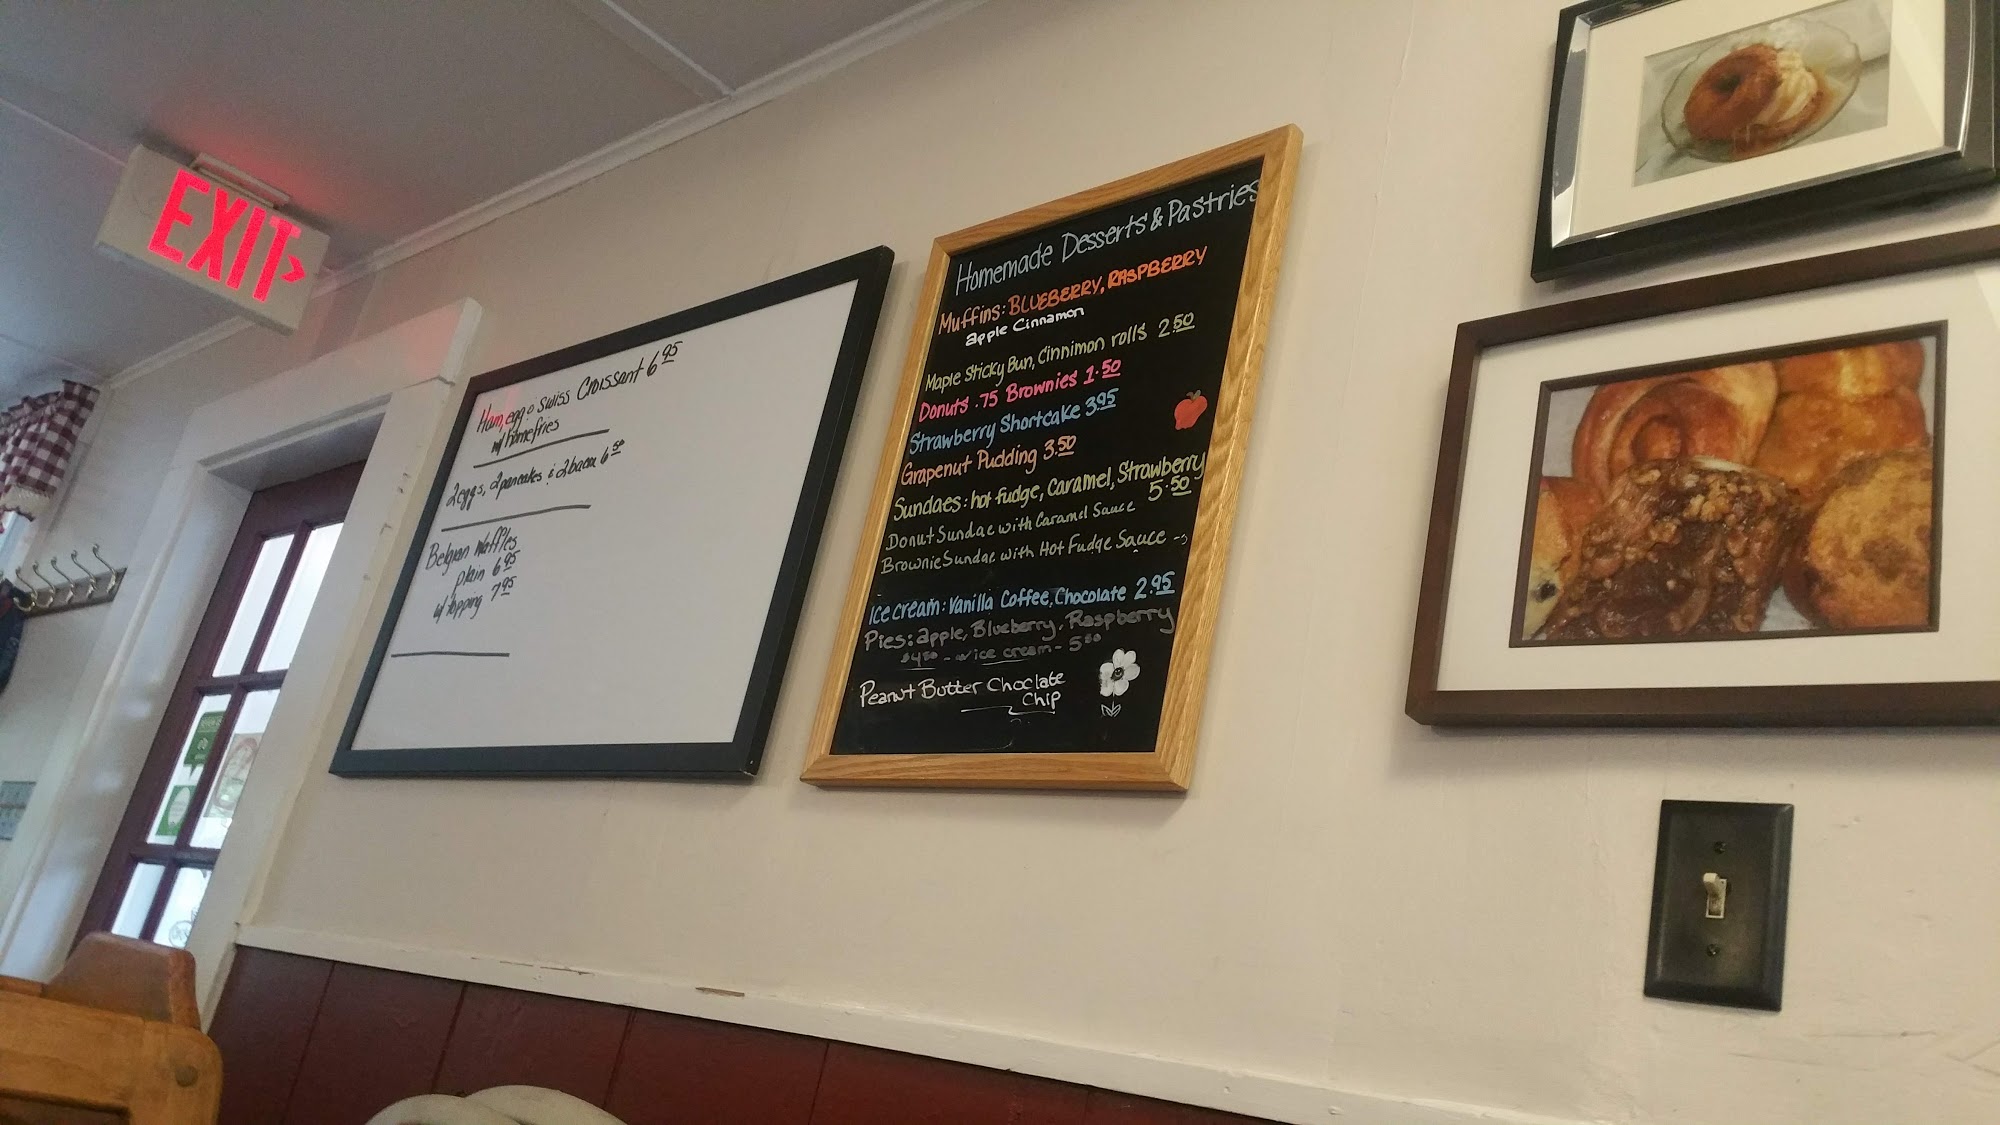 EXIT >
Ham, egg & Swiss Croissant 6.95
w/ homefries
2 eggs, 2 pancakes & 2 bacon 6.50
Belgian Waffles
plain 6.95
w/ topping 7.95
Homemade Desserts & Pastries
Muffins: BLUEBERRY, RASPBERRY
apple Cinnamon
Maple Sticky Bun, Cinnimon rolls 2.50
Donuts .75 Brownies 1.50
Strawberry Shortcake 3.95
Grapenut Pudding 3.50
Sundaes: hot fudge, Caramel, Strawberry
5.50
Donut Sundae with Caramel Sauce
Brownie Sundae with Hot Fudge Sauce
Ice cream: Vanilla Coffee, Chocolate 2.95
Pies: apple, Blueberry, Raspberry
$4.50 - w ice cream - 5.50
Peanut Butter Choclate
Chip